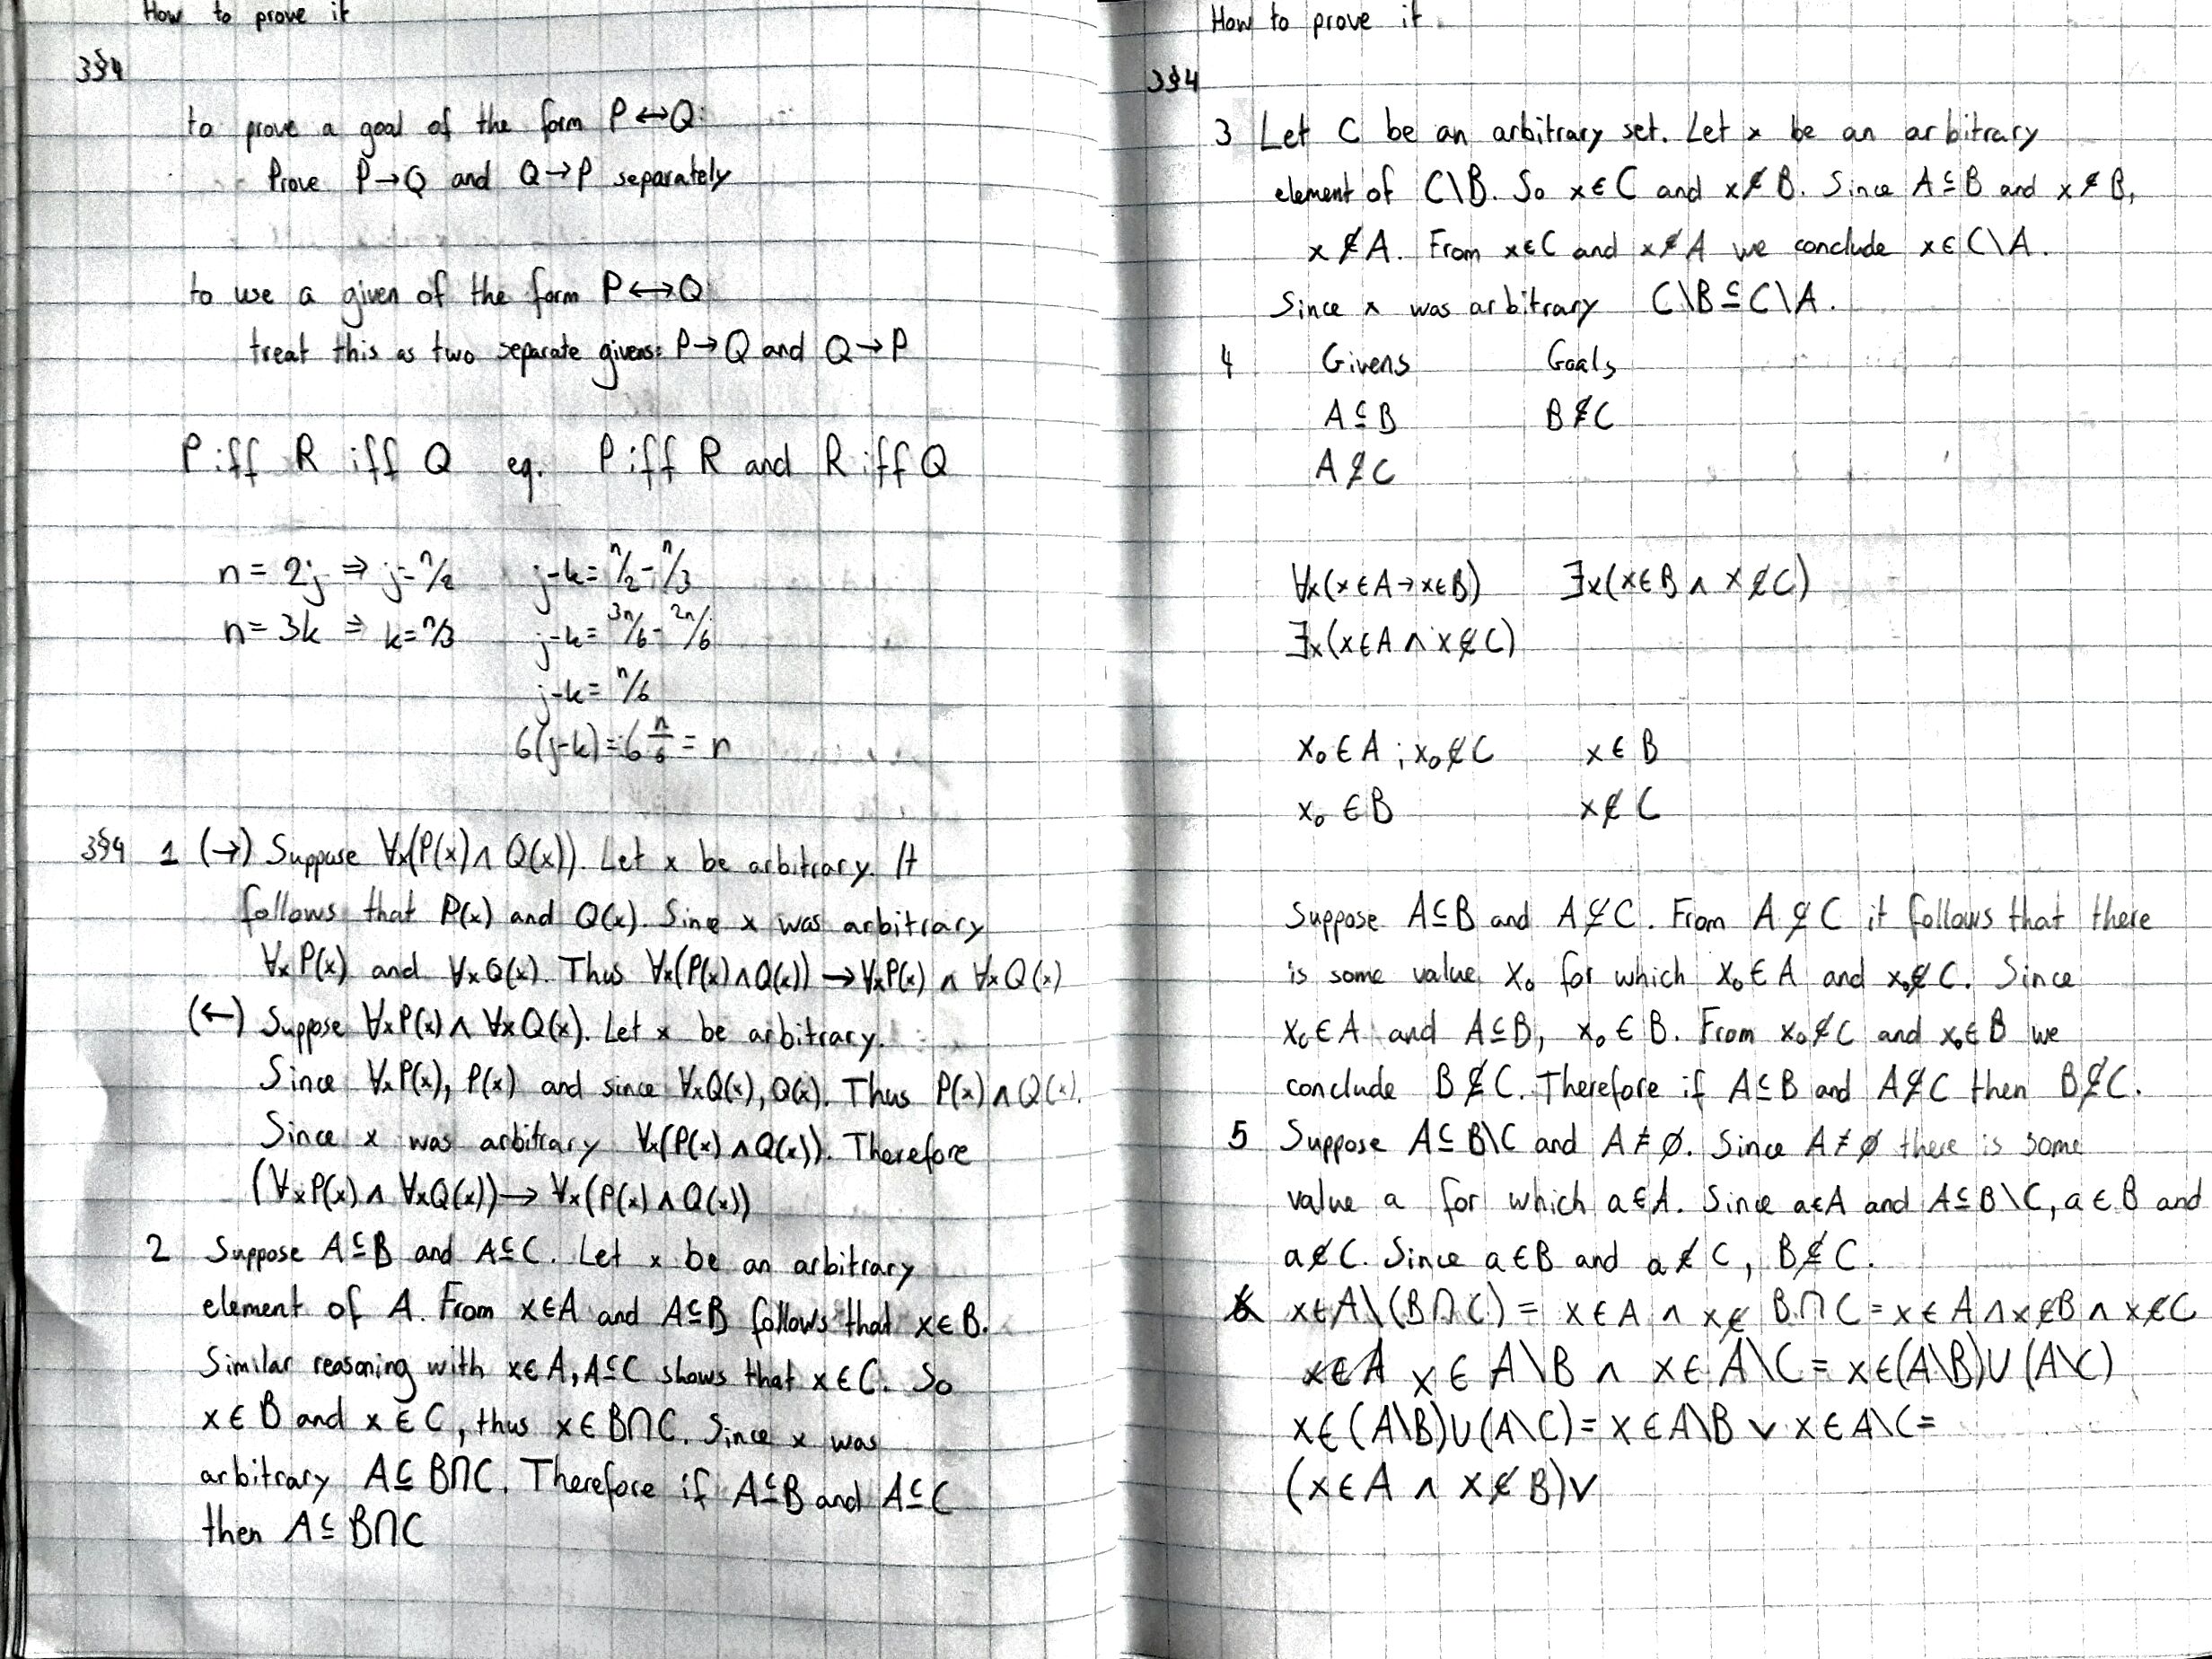 How to prove it
3§4
to prove a goal of the form P↔Q:
Prove P→Q and Q→P separately
to use a given of the form P↔Q:
treat this as two separate givens: P→Q and Q→P
P iff R iff Q eq. P iff R and R iff Q
n = 2j ⇒ j=n/2 j-k = n/2 - n/3
n = 3k ⇒ k=n/3 j-k = 3n/6 - 2n/6
j-k = n/6
6(j-k) = 6 n/6 = n
3§4 1 (→) Suppose ∀x(P(x)∧Q(x)). Let x be arbitrary. It
follows that P(x) and Q(x). Sine x was arbitrary
∀x P(x) and ∀x Q(x). Thus ∀x(P(x)∧Q(x)) → ∀xP(x) ∧ ∀xQ(x)
(←) Suppose ∀xP(x) ∧ ∀xQ(x). Let x be arbitrary.
Since ∀xP(x), P(x) and since ∀xQ(x), Q(x). Thus P(x)∧Q(x).
Since x was arbitrary ∀x(P(x)∧Q(x)). Therefore
(∀xP(x) ∧ ∀xQ(x)) → ∀x(P(x)∧Q(x))
2 Suppose A⊆B and A⊆C. Let x be an arbitrary
element of A. From x∈A and A⊆B follows that x∈B.
Similar reasoning with x∈A, A⊆C shows that x∈C. So
x∈B and x∈C, thus x∈B∩C. Since x was
arbitrary A⊆B∩C. Therefore if A⊆B and A⊆C
then A⊆B∩C
How to prove it
3§4
3 Let C be an arbitrary set. Let x be an arbitrary
element of C\B. So x∈C and x∉B. Since A⊆B and x∉B,
x∉A. From x∈C and x∉A we conclude x∈C\A.
Since x was arbitrary C\B⊆C\A.
4 Givens Goals
A⊆B B⊈C
A⊈C
∀x(x∈A→x∈B) ∃x(x∈B ∧ x∉C)
∃x(x∈A ∧ x∉C)
x₀∈A ; x₀∉C x∈B
x₀∈B x∉C
Suppose A⊆B and A⊈C. From A⊈C it follows that there
is some value x₀ for which x₀∈A and x₀∉C. Since
x₀∈A and A⊆B, x₀∈B. From x₀∉C and x₀∈B we
conclude B⊈C. Therefore if A⊆B and A⊈C then B⊈C.
5 Suppose A⊆B\C and A≠∅. Since A≠∅ there is some
value a for which a∈A. Since a∈A and A⊆B\C, a∈B and
a∉C. Since a∈B and a∉C, B⊈C.
6 x∈A\(B∩C) = x∈A ∧ x∉B∩C = x∈A∧x∉B∧x∉C
x∈A x∈A\B ∧ x∈A\C = x∈(A\B)∪(A\C)
x∈(A\B)∪(A\C) = x∈A\B ∨ x∈A\C =
(x∈A ∧ x∉B)∨